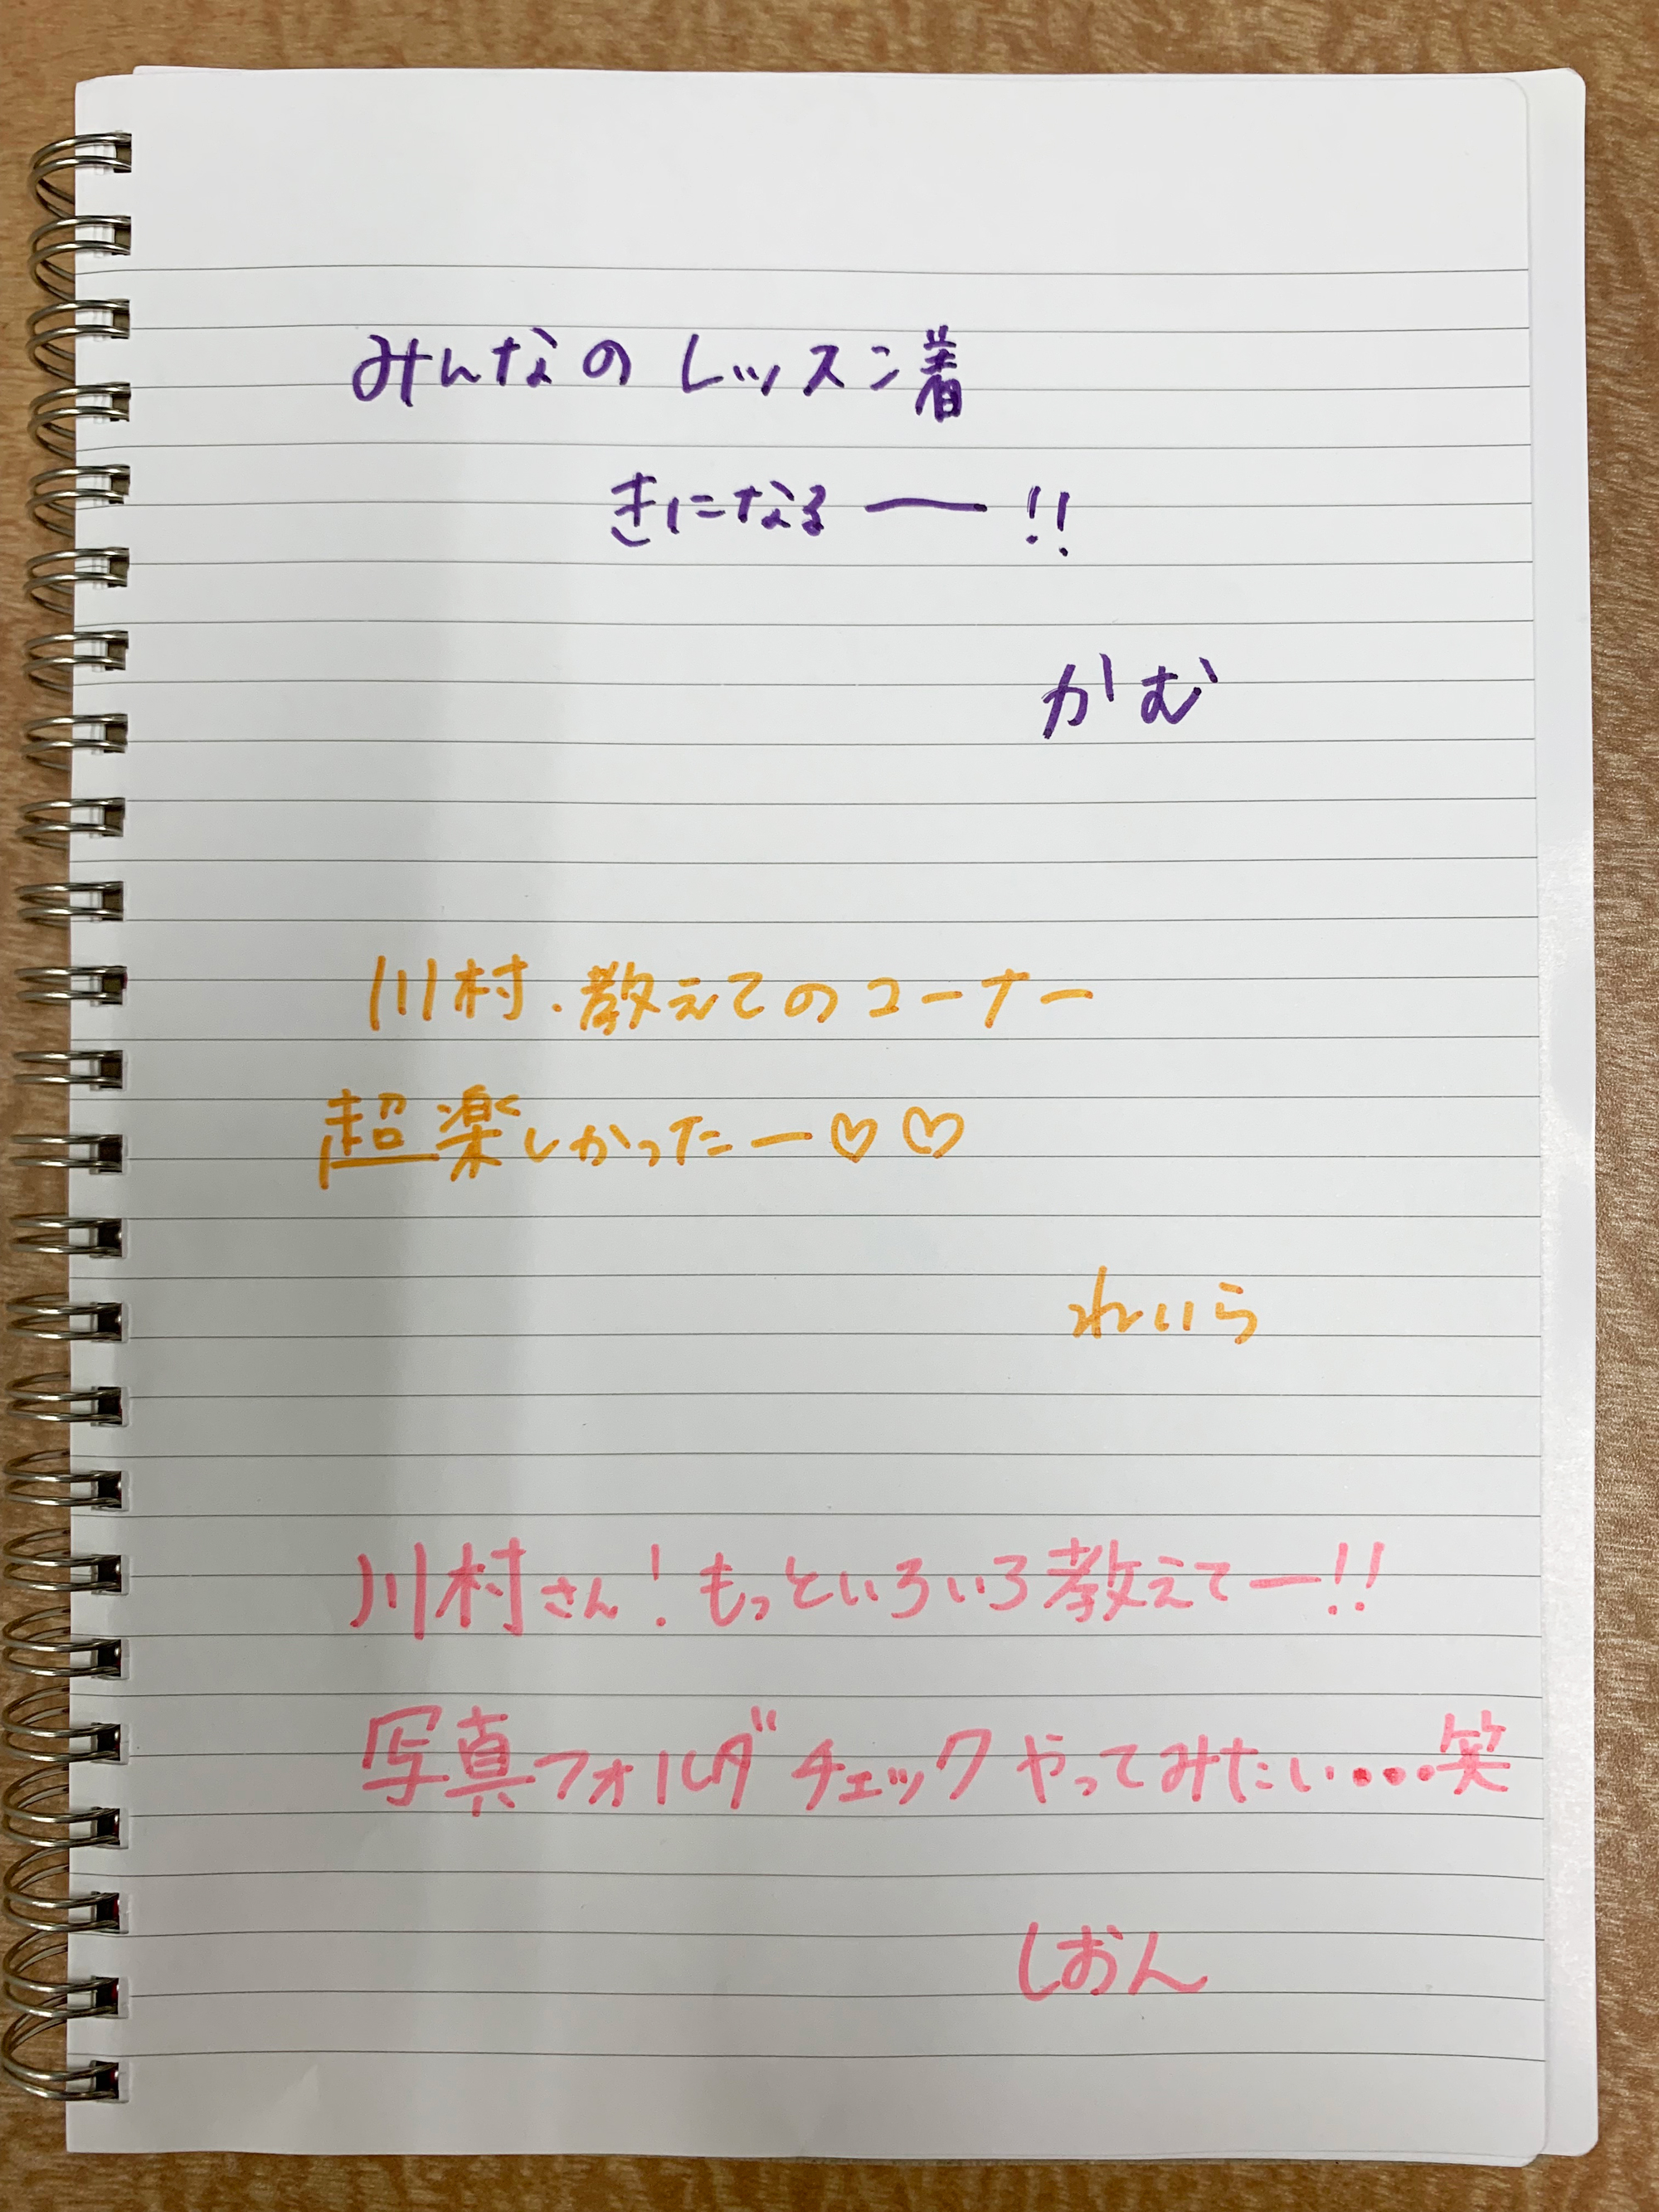 みんなのレッスン着
きになるー!!
かむ
川村.教えてのコーナー
超楽しかったー♡♡
れいら
川村さん!もっといろいろ教えてー!!
写真フォルダチェックやってみたい...笑
しおん